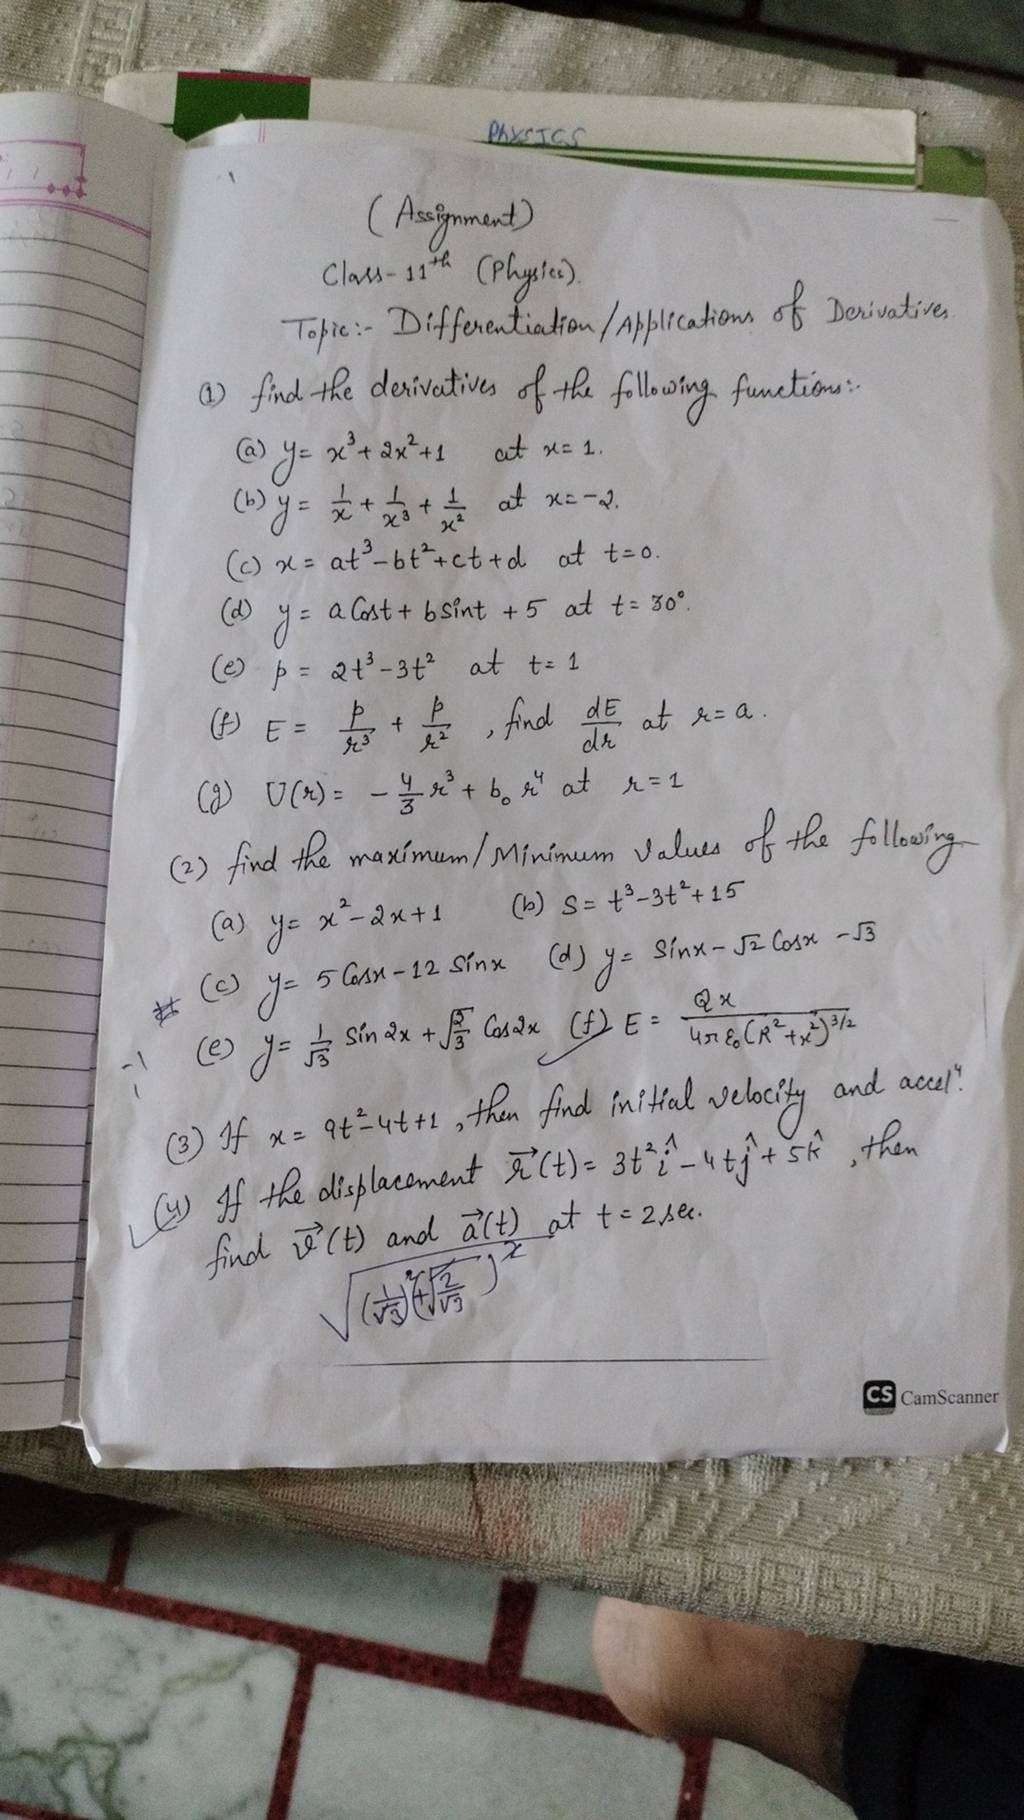 PHYSICS
(Assignment)
Class-11th (Physics).
Topic:- Differentiation/Applications of Derivatives.
(1) find the derivatives of the following functions:-
(a) y = x³ + 2x² + 1 at x = 1.
(b) y = 1/x + 1/x³ + 1/x² at x = -2.
(c) x = at³ - bt² + ct + d at t = 0.
(d) y = a Cost + b Sint + 5 at t = 30°.
(e) p = 2t³ - 3t² at t = 1
(f) E = p/r³ + p/r², find dE/dr at r = a.
(g) U(r) = -4/3 r³ + b₀ r⁴ at r = 1
(2) find the maximum/Minimum values of the following
(a) y = x² - 2x + 1 (b) S = t³ - 3t² + 15
(c) y = 5 Cosx - 12 Sinx (d) y = Sinx - √2 Cosx - √3
(e) y = 1/√3 Sin2x + √(2/3) Cos2x (f) E = Qx / 4πε₀(R² + x²)^3/2
(3) If x = 9t² - 4t + 1, then find initial velocity and accelⁿ.
(4) If the displacement r⃗(t) = 3t² î - 4t ĵ + 5k̂, then
find v⃗(t) and a⃗(t) at t = 2 sec.
CS CamScanner